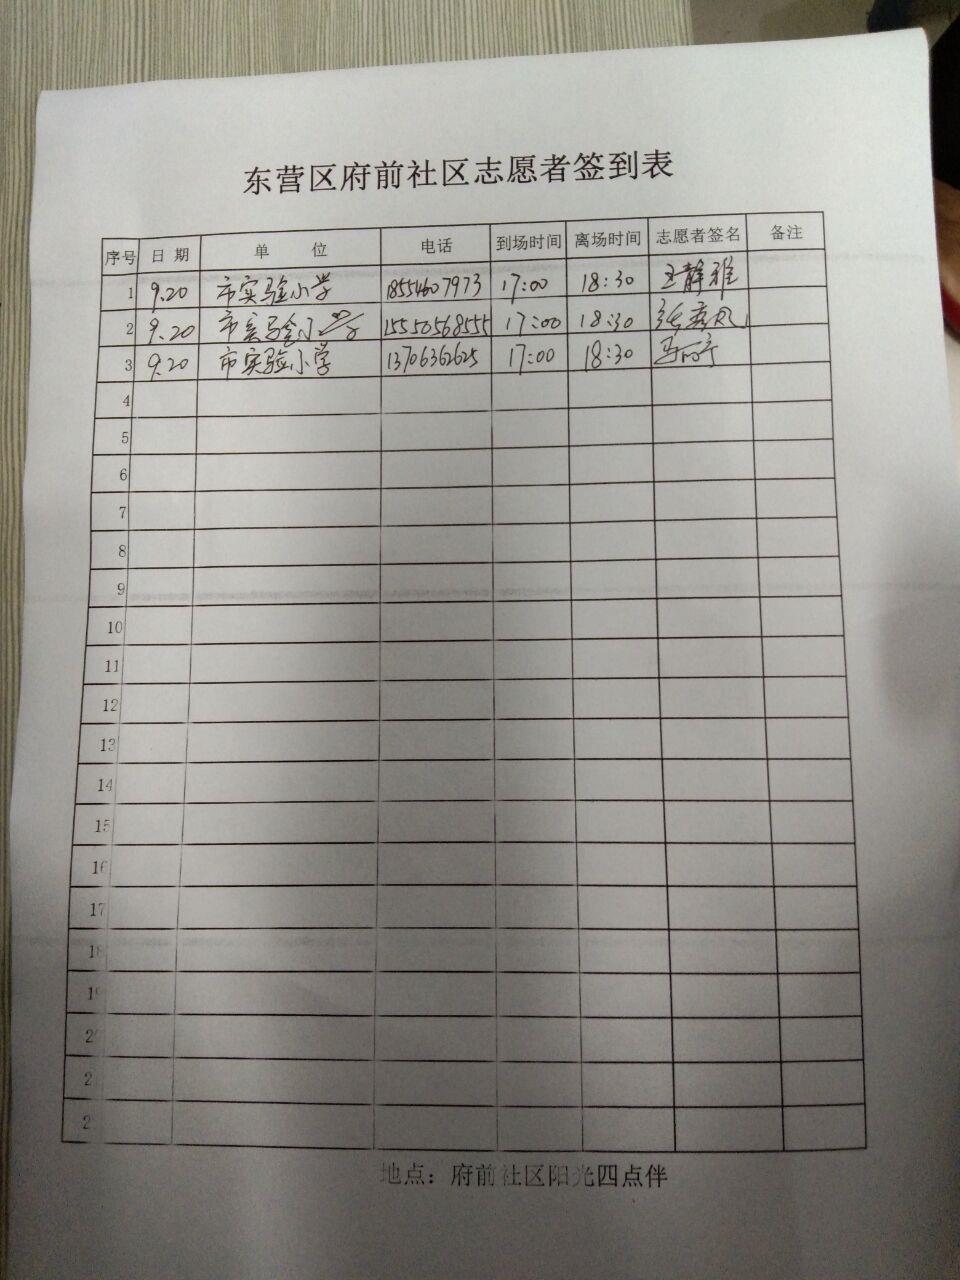 东营区府前社区志愿者签到表
序号 日期 单位 电话 到场时间 离场时间 志愿者签名 备注
1 9.20 市实验小学 18554607973 17:00 18:30 王静雅
2 9.20 市实验小学 15550568555 17:00 18:30
3 9.20 市实验小学 13706362625 17:00 18:30
4
5
6
7
8
9
10
11
12
13
14
15
16
17
18
19
2
2
2
地点：府前社区阳光四点伴